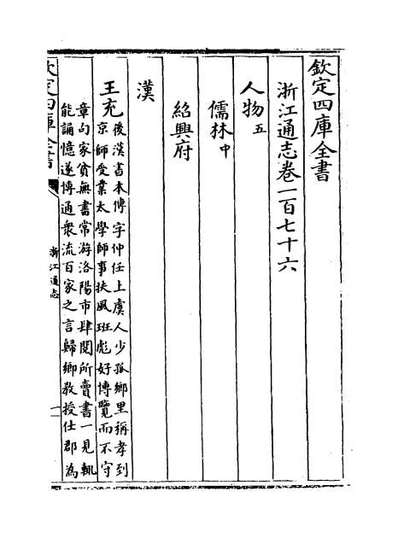 欽定四庫全書
浙江通志卷一百七十六
人物五
儒林中
紹興府
漢
王充後漢書本傳字仲任上虞人少孤鄉里稱孝到
京師受業太學師事扶風班彪好博覽而不守
章句家貧無書常游洛陽市肆閱所賣書一見輒
能誦憶遂博通衆流百家之言歸鄉教授仕郡為
欽定四庫全書
浙江通志
一